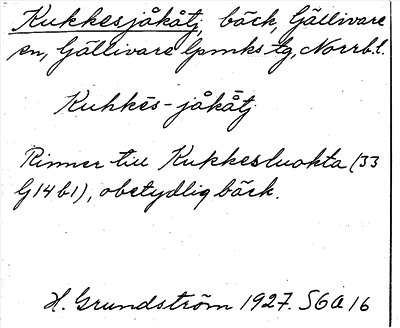 Kukkesjåkåtj, bäck, Gällivare
sn, Gällivare lpmks tg, Norrb.l.
Kuhkēs-jåkåtj
Rinner till Kukkesluokta (33
G14b1), obetydlig bäck.
H. Grundström 1927. SGA 16